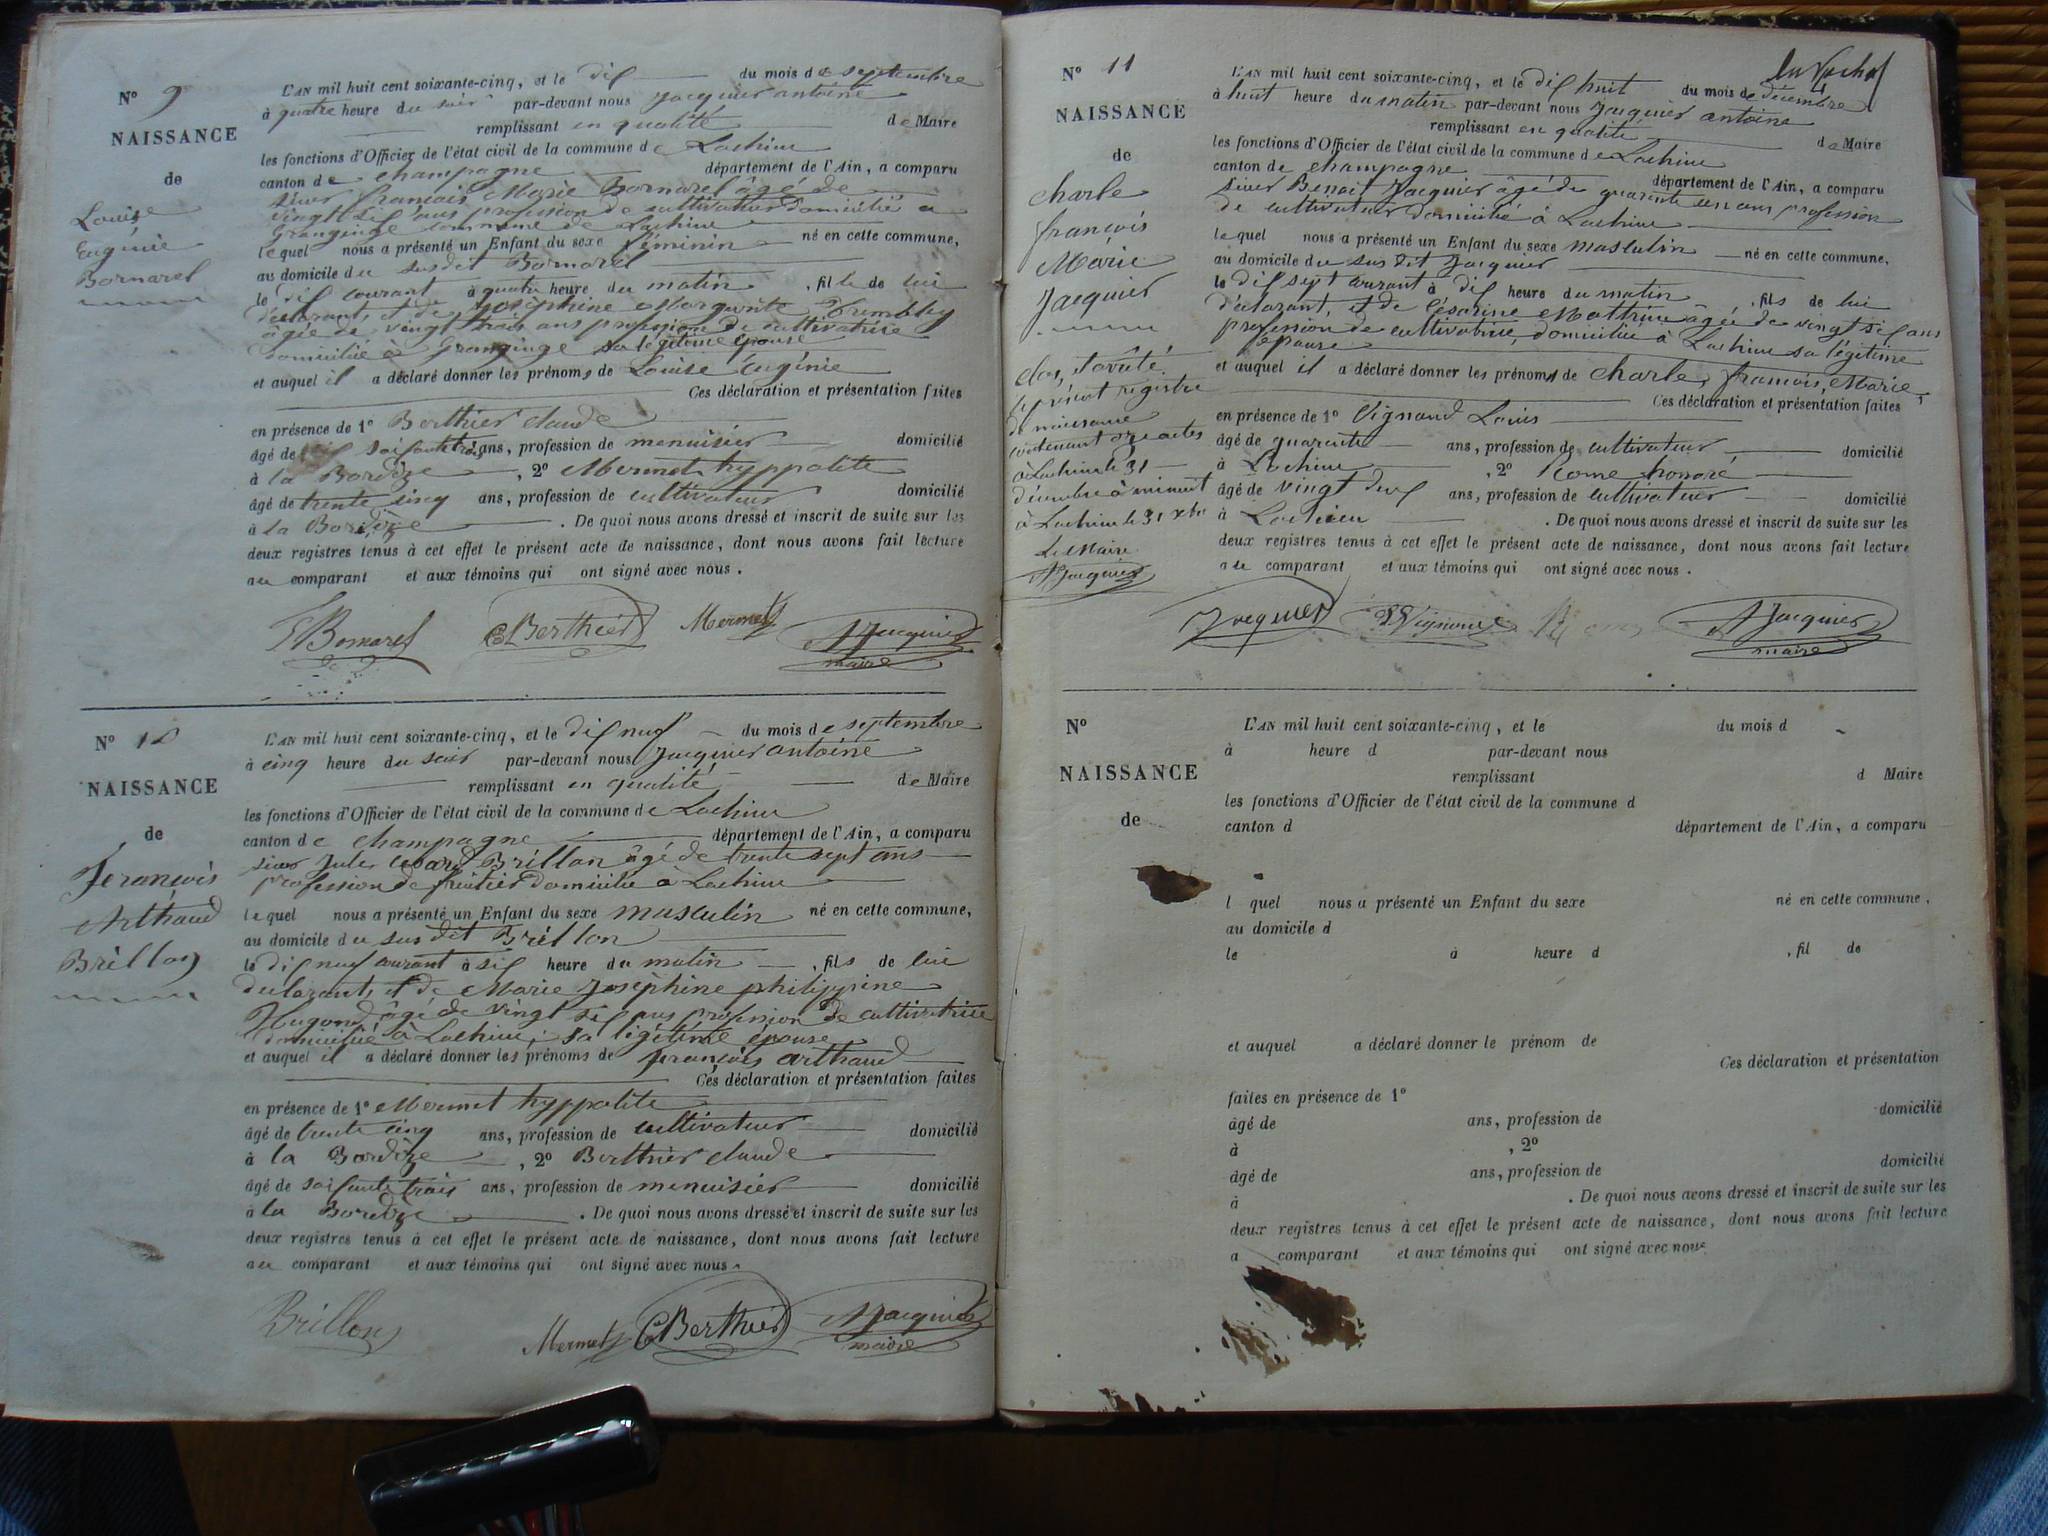 N° 9
NAISSANCE
de
Louise
Eugénie
Bornarel
L'AN mil huit cent soixante-cinq, et le dix du mois de septembre
à quatre heure du soir par-devant nous Jacquier antoine
remplissant en qualité de Maire
les fonctions d'Officier de l'état civil de la commune de Lochieu
canton de champagne département de l'Ain, a comparu
sieur françois Marie Bornarel âgé de
vingt six ans profession de cultivateur domicilié a
Granginge commune de Lochieu
lequel nous a présenté un Enfant du sexe féminin né en cette commune,
au domicile du susdit Bornarel
le dix courant à quatre heure du matin, fille de lui
déclarant, et de Joséphine Margurite Trembley
âgée de vingt trois ans profession de cultivatrice
domiciliée à Granginge sa légitime épouse
et auquel il a déclaré donner les prénoms de Louise Eugénie
Ces déclaration et présentation faites
en présence de 1° Berthier claude
âgé de soixante trois ans, profession de menuisier domicilié
à la Bordèze, 2° Mermet hyppolite
âgé de trente cinq ans, profession de cultivateur domicilié
à la Bordèze. De quoi nous avons dressé et inscrit de suite sur les
deux registres tenus à cet effet le présent acte de naissance, dont nous avons fait lecture
au comparant et aux témoins qui ont signé avec nous.
Bornarel CBerthier Mermet AJacquier
maire
N° 10
NAISSANCE
de
François
Arthaud
Brillon
L'AN mil huit cent soixante-cinq, et le dix neuf du mois de septembre
à cinq heure du soir par-devant nous Jacquier antoine
remplissant en qualité de Maire
les fonctions d'Officier de l'état civil de la commune de Lochieu
canton de champagne département de l'Ain, a comparu
sieur Jules Brillon âgé de trente sept ans
profession de fruitier domicilié à Lochieu
lequel nous a présenté un Enfant du sexe masculin né en cette commune,
au domicile du sus dit Brillon
le dix neuf courant à six heure du matin, fils de lui
déclarant, et de Marie Joséphine philippine
Hugond âgé de vingt six ans profession de cultivatrice
domiciliée à Lochieu, sa légitime épouse
et auquel il a déclaré donner les prénoms de françois arthaud
Ces déclaration et présentation faites
en présence de 1° Mermet hyppolite
âgé de trente cinq ans, profession de cultivateur domicilié
à la Bordèze, 2° Berthier claude
âgé de soixante trois ans, profession de menuisier domicilié
à la Bordèze. De quoi nous avons dressé et inscrit de suite sur les
deux registres tenus à cet effet le présent acte de naissance, dont nous avons fait lecture
au comparant et aux témoins qui ont signé avec nous.
Brillon Mermet CBerthier AJacquier
maire
N° 11
NAISSANCE
de
charle
françois
Marie
Jacquier
clos, et arrêté
le présent registre
de naissance
contenant onze actes
à Lochieu le 31
décembre à minuit
à Lochieu le 31 xbre
Le Maire
AJacquier
L'AN mil huit cent soixante-cinq, et le dix huit du mois de décembre
à huit heure du matin par-devant nous Jacquier antoine
remplissant en qualité de Maire
les fonctions d'Officier de l'état civil de la commune de Lochieu
canton de champagne département de l'Ain, a comparu
sieur Benoit Jacquier âgé de quarente un ans profession
de cultivateur domicilié à Lochieu
lequel nous a présenté un Enfant du sexe masculin né en cette commune,
au domicile du sus dit Jacquier
le dix sept courant à dix heure du matin, fils de lui
déclarant, et de Césarine Mathieu âgée de vingt six ans
profession de cultivatrice, domiciliée à Lochieu sa légitime
épouse
et auquel il a déclaré donner les prénoms de charle, françois, Marie,
Ces déclaration et présentation faites
en présence de 1° Vignand Louis
âgé de quarente ans, profession de cultivateur, domicilié
à Lochieu, 2° Rome honoré
âgé de vingt deux ans, profession de cultivateur domicilié
à Lochieu. De quoi nous avons dressé et inscrit de suite sur les
deux registres tenus à cet effet le présent acte de naissance, dont nous avons fait lecture
au comparant et aux témoins qui ont signé avec nous.
Jacquier AJacquier
maire
N°
NAISSANCE
de
L'AN mil huit cent soixante-cinq, et le du mois d
à heure d par-devant nous
remplissant d Maire
les fonctions d'Officier de l'état civil de la commune d
canton d département de l'Ain, a comparu
l quel nous a présenté un Enfant du sexe né en cette commune,
au domicile d
le à heure d, fil de
et auquel a déclaré donner le prénom de
Ces déclaration et présentation
faites en présence de 1°
âgé de ans, profession de domicilié
à, 2°
âgé de ans, profession de domicilié
à. De quoi nous avons dressé et inscrit de suite sur les
deux registres tenus à cet effet le présent acte de naissance, dont nous avons fait lecture
a comparant et aux témoins qui ont signé avec nous